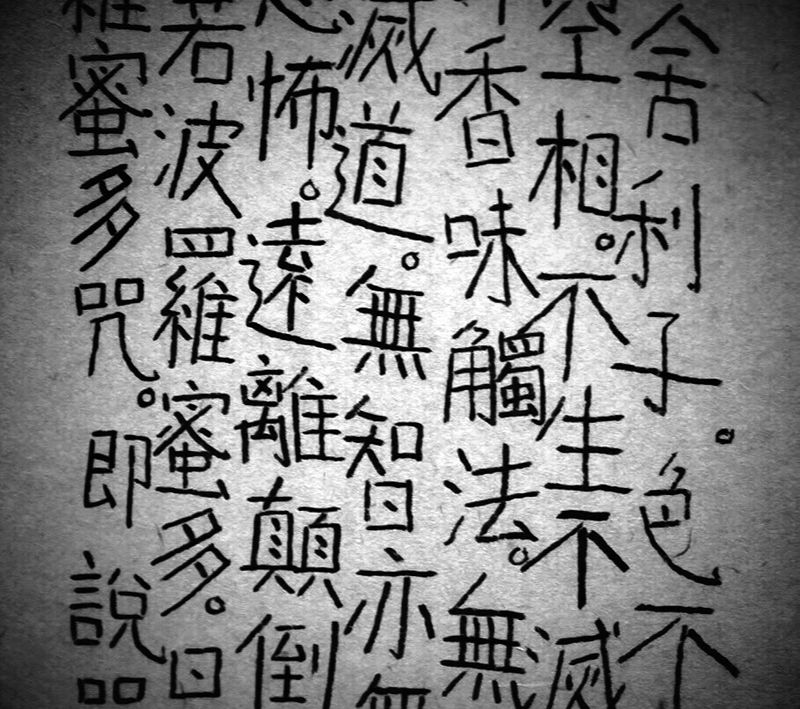 舍利子。色不
空相。不生不滅
香味觸法。無
滅道。無智亦無
怖。遠離顛倒
若波羅蜜多。
羅蜜多咒。即說